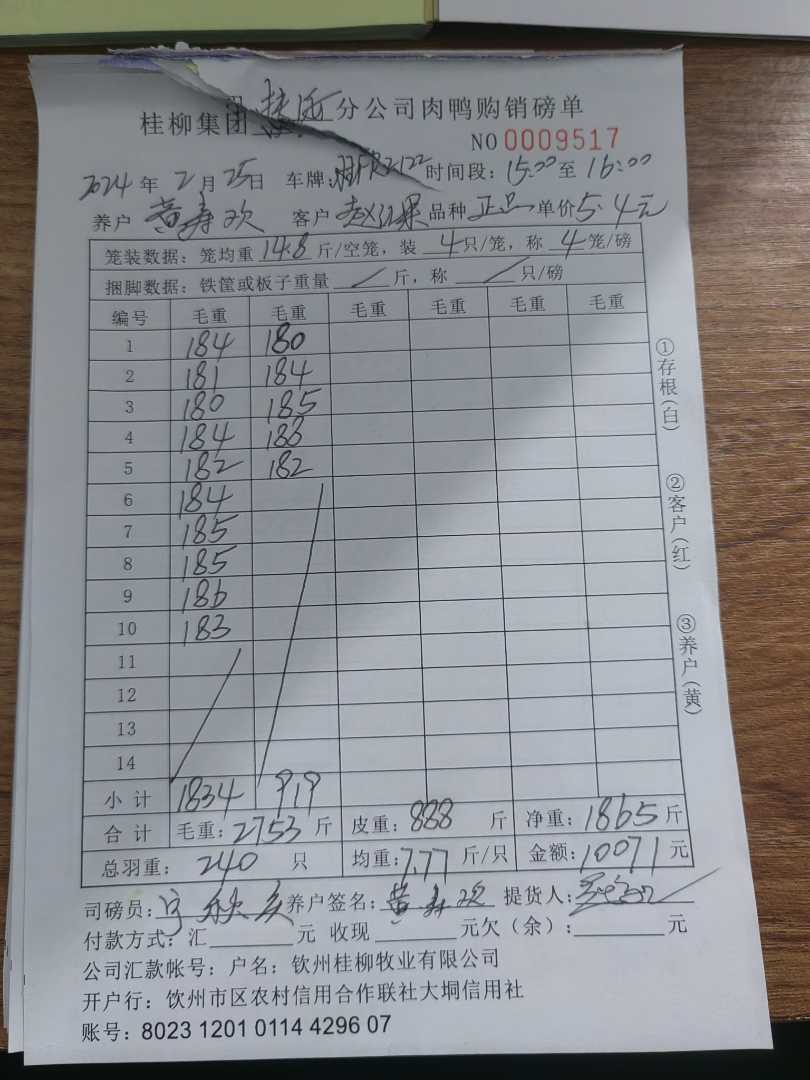 桂柳集团 分公司肉鸭购销磅单
NO 0009517
2024 年 2 月 25 日 车牌: 时间段: 15:00 至 16:00
养户 黄寿欢 客户 品种 正品 单价 5.4元
笼装数据: 笼均重 14.8 斤/空笼, 装 4 只/笼, 称 4 笼/磅
捆脚数据: 铁筐或板子重量 / 斤, 称 / 只/磅
编号 毛重 毛重 毛重 毛重 毛重 毛重
1 184 180
2 181 184
3 180 185
4 184 188
5 182 182
6 184
7 185
8 185
9 186
10 183
11
12
13
14
小计 1834 919
合计 毛重: 2753 斤 皮重: 888 斤 净重: 1865 斤
总羽重: 240 只 均重: 7.77 斤/只 金额: 10071 元
司磅员: 养户签名: 黄寿欢 提货人:
付款方式: 汇 元 收现 元欠(余): 元
公司汇款帐号: 户名: 钦州桂柳牧业有限公司
开户行: 钦州市区农村信用合作联社大垌信用社
账号: 8023 1201 0114 4296 07
①存根(白)
②客户(红)
③养户(黄)